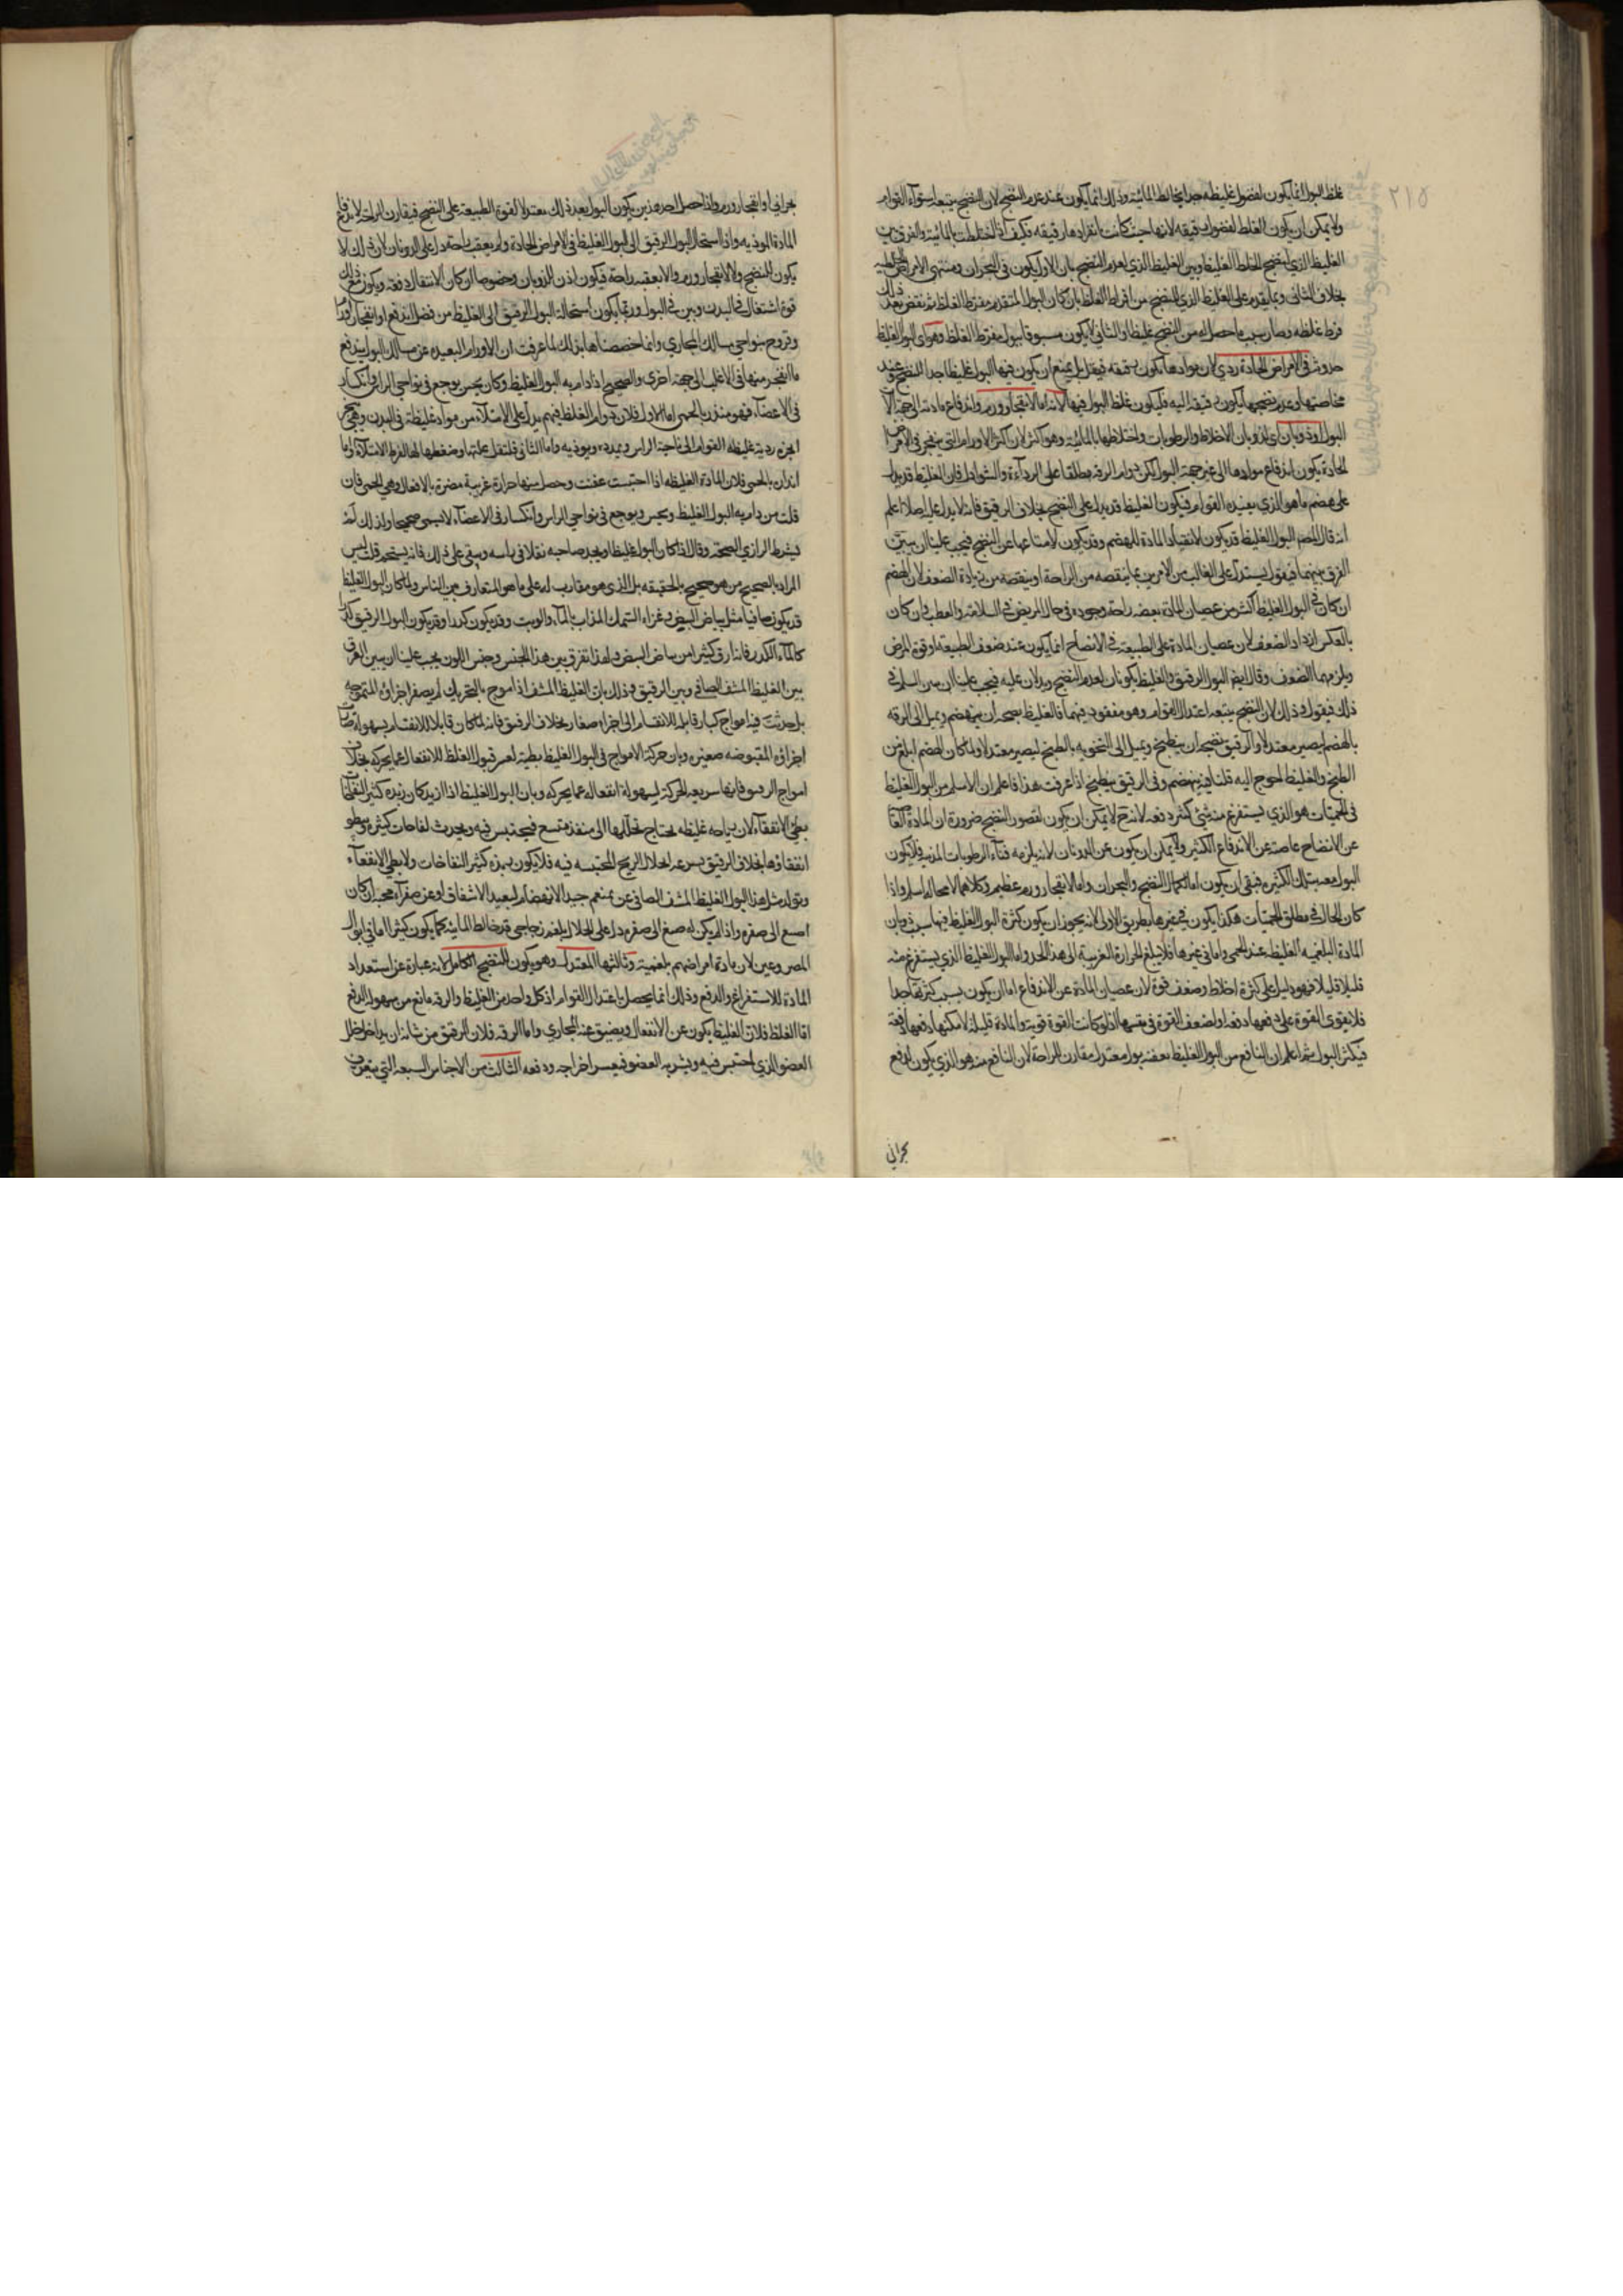 ٢١٥
غلظ البول انما يكون لفضول غليظه جدا يخالط المائية وذلك انما يكون عند عدم النضج لان النضج يتبعه استواء القوام
ولا يمكن ان يكون الغلظ لفضول رقيقه لانها حيث كانت بانفرادها رقيقه فكيف اذا اختلطت بالمائية والفرق بين
الغليظ الذي لنضج الخلط الغليظ وبين الغليظ الذي لعدم النضج بان الاول يكون في البحران ومنتهى الامراض
بخلاف الثاني وبما يتقدم على الغليظ الذي للنضج من افراط الغلظ بان كان البول المتقدم مفرط الغلظ ثم نقص بعد ذلك
فرط غلظه وصار بسبب ما حصل له من النضج غليظا والثاني لا يكون مسبوقا ببول مفرط الغلظ وهو اى البول الغليظ
حدوثه في الامراض الحادة ردي لان موادها تكون رقيقه فيقل بل يمتنع ان يكون فيها البول غليظا جدا للنضج
البول او ذوبان اى لذوبان الاخلاط والرطوبات واختلاطها بالمائية وهو اكثر لان اكثر الاورام التي تنفجر في الامراض
الحادة يكون اندفاع موادها الى غير جهة البول لكن دوام الرقه مطلقا على الرداءة والشر اذل فان الغليظ قد يدل
على هضم ما هو الذي يفيده القوام فيكون الغليظ قد يدل على النضج بخلاف الرقيق فانه لا يدل عليه اصلا اعلم
انه قال المص البول الغليظ قد يكون لانقياد المادة للهضم وقد يكون لامتناعها عن النضج فيجب علينا ان نبين
الفرق بينهما فيقول يستدل على الغالب من الامرين بما يتعقبه من الراحة او يتعقبه من زيادة الضعف لان الهضم
ان كان في البول الغليظ اكثر من عصيان المادة يعقبه راحة وجوده في حال المريض في السلامة والعطب وان كان
بالعكس ازداد الضعف لان عصيان المادة على الطبيعة في الانضاج انما يكون عند ضعف الطبيعة او قوة المرض
ويلزمهما الضعف وقال ايضا البول الرقيق والغليظ يكونان لعدم النضج ويدلان عليه فيجب علينا ان نبين السلم في
ذلك فيقول في ذلك لان النضج يتبعه اعتدال القوام وهو مفقود فيهما فالغليظ نضجه ان ينهضم ويميل الى الرقه
بالهضم ليصير معتدلا والرقيق نضجه ان ينطبخ ويميل الى الثخونه بالطبخ ليصير معتدلا ولما كان الهضم ابلغ من
الطبخ والغليظ احوج اليه قلنا فيه ينهضم وفي الرقيق ينطبخ اذا عرفت هذا فاعلم ان الاسلم من البول الغليظ
في الحميات هو الذي يستفرغ منه شئ كثير دفعه لانه ح لا يمكن ان يكون لقصور النضج ضرورة ان المادة
عن الانضاج عاصية عن الاندفاع الكثير ولا يمكن ان يكون عن الذوبان لانه يلزمه فناء الرطوبات المذيبه فلا يكون
البول معه بتلك الكثرة فبقي ان يكون اما لكمال النضج والبحران واما لانفجار ورم عظيم وكلاهما لا محالة اسلم واذا
كان الحال في مطلق الحميات هكذا يكون في غيرها بطريق الاولى لانه يجوز ان يكون كثرة البول الغليظ فيها بسبب ذوبان
المادة البلغميه الغليظه عند الحمى واما في غيرها فلا يبلغ الحرارة الغريبة الى هذا الحد واما البول الغليظ الذي يستفرغ منه
قليلا قليلا فهو دليل على كثرة اخلاط وضعف قوة لان عصيان المادة عن الاندفاع اما ان يكون بسبب كثرتها جدا
فلا يقوى القوة على دفعها دفعة او لضعف القوة في نفسها اذ لو كانت القوة قوية والمادة قليلة لامكنها دفعها دفعة
فيكثر البول ثم اعلم ان النافع من البول الغليظ يعقبه بول معتدل مقارن الراحة لان النافع منه هو الذي يكون لدفع
بحراني
بحراني او انفجار ورم واذا حصل احد هذين يكون البول بعد ذلك معتدلا لقوة الطبيعة على النضج فيقارن الراحة لاندفاع
المادة الموذيه واذا استحال البول الرقيق الى البول الغليظ في الامراض الحادة ولم يعقبه راحة دل على الذوبان لان ذلك لا
يكون للنضج ولا لانفجار ورم والا يعقبه راحة فيكون اذن للذوبان وخصوصا ان كان الانتقال دفعة ويكون مع ذلك
قوة اشتعال في البدن وبين في البول وربما يكون استحالة البول الرقيق الى الغليظ من فضل اندفع او انفجار اورام
وقروح بنواحي مسالك المجاري وانما خصصناها بذلك لما عرفت ان الاورام البعيده عن مسالك البول يندفع
ما انفجر منها في الاغلب الى جهة اخرى والصحيح اذا دام به البول الغليظ وكان يحس بوجع في نواحي الراس وانكسار
في الاعضاء فهو منذر بالحمى اما الاول فلان دوام الغلظ فيهم يدل على الامتلاء من مواد غليظة في البدن
ابخرة ردية غليظه القوام الى ناحية الراس ويمدده ويوذيه واما الثاني فلثقل محلتها وضغطها لها لفرط الامتلاء واما
انذاره بالحمى فلان المادة الغليظه اذا احتبست عفنت وحصل منها حرارة غريبة مضرة بالافعال وهي الحمى فان
قلت من دام به البول الغليظ ويحس بوجع في نواحي الراس وانكسار في الاعضاء لا يسمى صحيحا ولذلك لم
يشرط الرازي الصحة وقال اذا كان البول غليظا ويجد صاحبه ثقلا في راسه وبقي على ذلك فانه يستحم قلت ليس
المراد بالصحيح من هو صحيح بالحقيقه بل الذي هو مقارب له على ما هو المتعارف بين الناس ولما كان البول الغليظ
قد يكون صافيا مثل بياض البيض وغراء السمك المذاب بالماء والزيت وقد يكون كدرا وقد يكون البول الرقيق كدرا
كالماء الكدر فانه ارق كثيرا من بياض البيض ولهذا تفرق بين هذا الجنس وجنس اللون يجب علينا ان نبين الفرق
بين الغليظ المشف الصافي وبين الرقيق وذلك بان الغليظ المشف اذا موج بالتحريك لم يصغر اجزاؤه المتموجه
بل حدثت فيه امواج كبار قابلة للانقسام الى اجزاء صغار بخلاف الرقيق فانه لما كان قابلا للانقسام بسهولة
اجزاؤه المقبوضه صغيره وبان حركة الامواج في البول الغليظ بطيئة لعسر قبول الغلظ للانفعال عما يحركه بخلاف
امواج الرقيق فانها سريعه الحركة لسهولة انفعاله عما يحركه وبان البول الغليظ اذا ازبد كان زبده كثير النفاخات
بطئ الانفقاء لان رياحه غليظه يحتاج تحللها الى منفذ متسع فيحتبس فيه ويحدث نفاخات كثيرة
انفقاؤها بخلاف الرقيق بسرعة انحلال الريح المحتبسه فيه فلا يكون زبده كثير النفاخات ولا بطئ الانفقاء
وتولد مثل هذا البول الغليظ المشف الصافي عن بلغم جيد الانهضام ليعيد الاشفاف او عن صفراء محيه ان كان
اصبغ الى صفره واذا لم يكن له صبغ الى صفره دل على انحلال بلغم زجاجي قد خالط المائية كما يكون كثيرا ما في ابوال
المصروعين لان مادة امراضهم بلغمية وثالثها المعتدل وهو يكون للنضج الكامل لانه عبارة عن استعداد
المادة للاستفراغ والدفع وذلك انما يحصل باعتدال القوام اذ كل واحد من الغليظ والرقه مانع من سهولة الدفع
اما الغلظ فلان الغليظ يكون عن الانفعال ويضيق عنه المجاري واما الرقه فلان الرقيق من شانه ان يداخل خلل
العضو الذي احتبس فيه ويشربه العضو فيعسر اخراجه ودفعه الثالث من الاجناس السبعه التي يتعرف